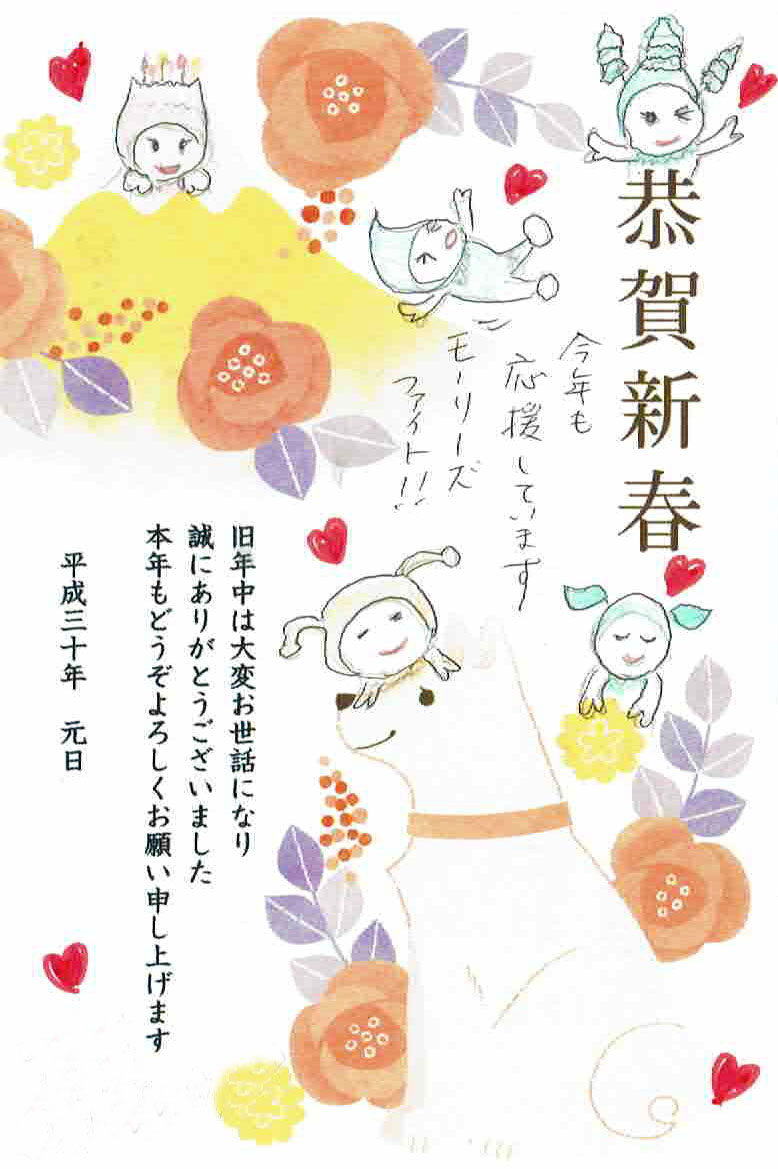 恭賀新春
今年も
応援しています
モーリーズ
ファイト!!
旧年中は大変お世話になり
誠にありがとうございました
本年もどうぞよろしくお願い申し上げます
平成三十年 元日